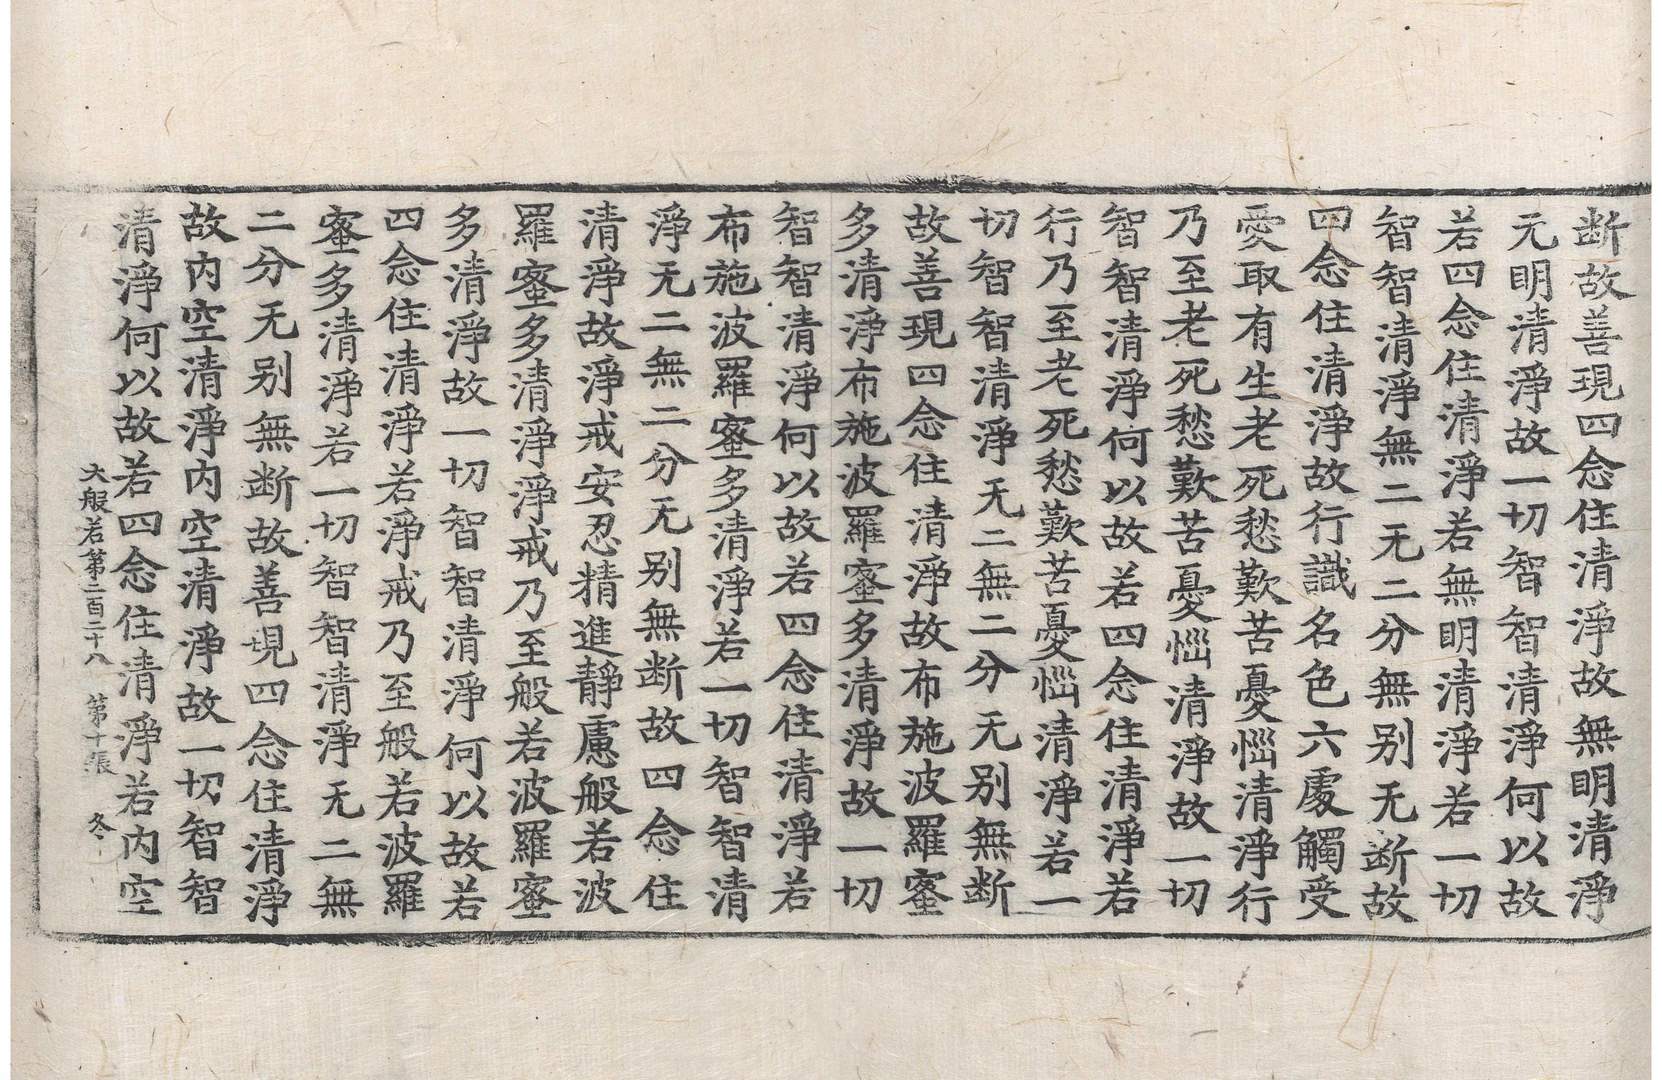 断故善現四念住清淨故無明清淨
无明清淨故一切智智清淨何以故
若四念住清淨若無明清淨若一切
智智清淨無二无二分無别无断故
四念住清淨故行識名色六處觸受
愛取有生老死愁歎苦憂惱清淨行
乃至老死愁歎苦憂惱清淨故一切
智智清淨何以故若四念住清淨若
行乃至老死愁歎苦憂惱清淨若一
切智智清淨无二無二分无别無断
故善現四念住清淨故布施波羅蜜
多清淨布施波羅蜜多清淨故一切
智智清淨何以故若四念住清淨若
布施波羅蜜多清淨若一切智智清
淨无二無二分无别無断故四念住
清淨故淨戒安忍精進靜慮般若波
羅蜜多清淨淨戒乃至般若波羅蜜
多清淨故一切智智清淨何以故若
四念住清淨若淨戒乃至般若波羅
蜜多清淨若一切智智清淨无二無
二分无别無断故善現四念住清淨
故内空清淨内空清淨故一切智智
清淨何以故若四念住清淨若内空
大般若第二百二十八 第十張 冬